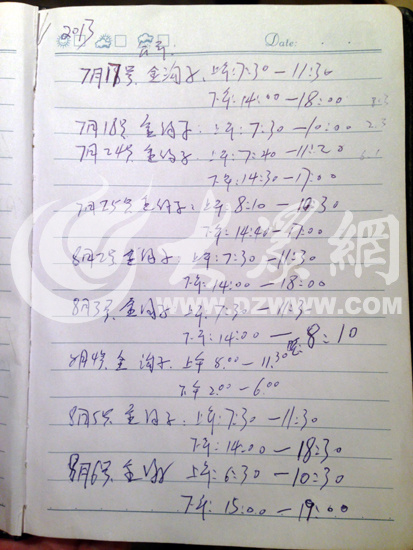 2013
Date:
7月17号 金沟子、上午:7:30—11:30
下午:14:00—18:00
7月18号 金沟子:上午:7:30—10:00
7月24号 金沟子:上午:7:40—11:20
下午:14:30—17:00
7月25号 金沟子:上午 8:10—12:30
下午:14:40—17:00
8月2号 金沟子:上午:7:30—11:30
下午:14:00—18:00
大眾網
WWW.DZWWW.COM
8月3号 金沟子:上午:7:30—11:30
下午:14:00—晚8:10
8月4号 金沟子 上午 8:00—11:30
下午 2:00—6:00
8月5号 金沟子:上午:7:30—11:30
下午:14:00—18:30
8月6号 金沟子 上午:6:30—10:30
下午:15:00—19:00